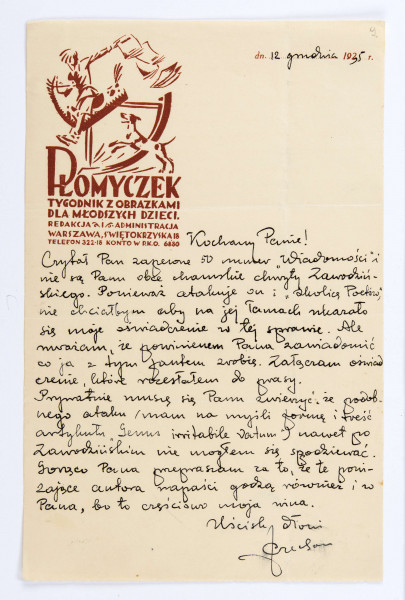 2
dn. 12 grudnia 1935 r.
PŁOMYCZEK
TYGODNIK Z OBRAZKAMI
DLA MŁODSZYCH DZIECI.
REDAKCJA I ADMINISTRACJA
WARSZAWA, ŚWIĘTOKRZYSKA 18
TELEFON 322-18 KONTO W P.K.O. 6880
Kochany Panie!
Czytał Pan zapewne 50 numer „Wiadomości" i
nie są Panu obce chamskie chwyty Zawodziń-
skiego. Ponieważ atakuje on i „Okolicę Poetów",
nie chciałbym aby na jej łamach ukazało
się moje oświadczenie w tej sprawie. Ale
uważam, że powinienem Pana zawiadomić
co ja z tym fantem zrobię. Załączam oświad
czenie, które rozesłałem do prasy.
Prywatnie muszę się Panu zwierzyć, że podob-
nego ataku /mam na myśli formę i treść
artykułu „Genus irritabile Vatum"/ nawet po
Zawodzińskim nie mogłem się spodziewać.
Gorąco Pana przepraszam za to, że te poni-
żające autora napaści godzą również i w
Pana, bo to częściowo moja wina.
Uścisk dłoni